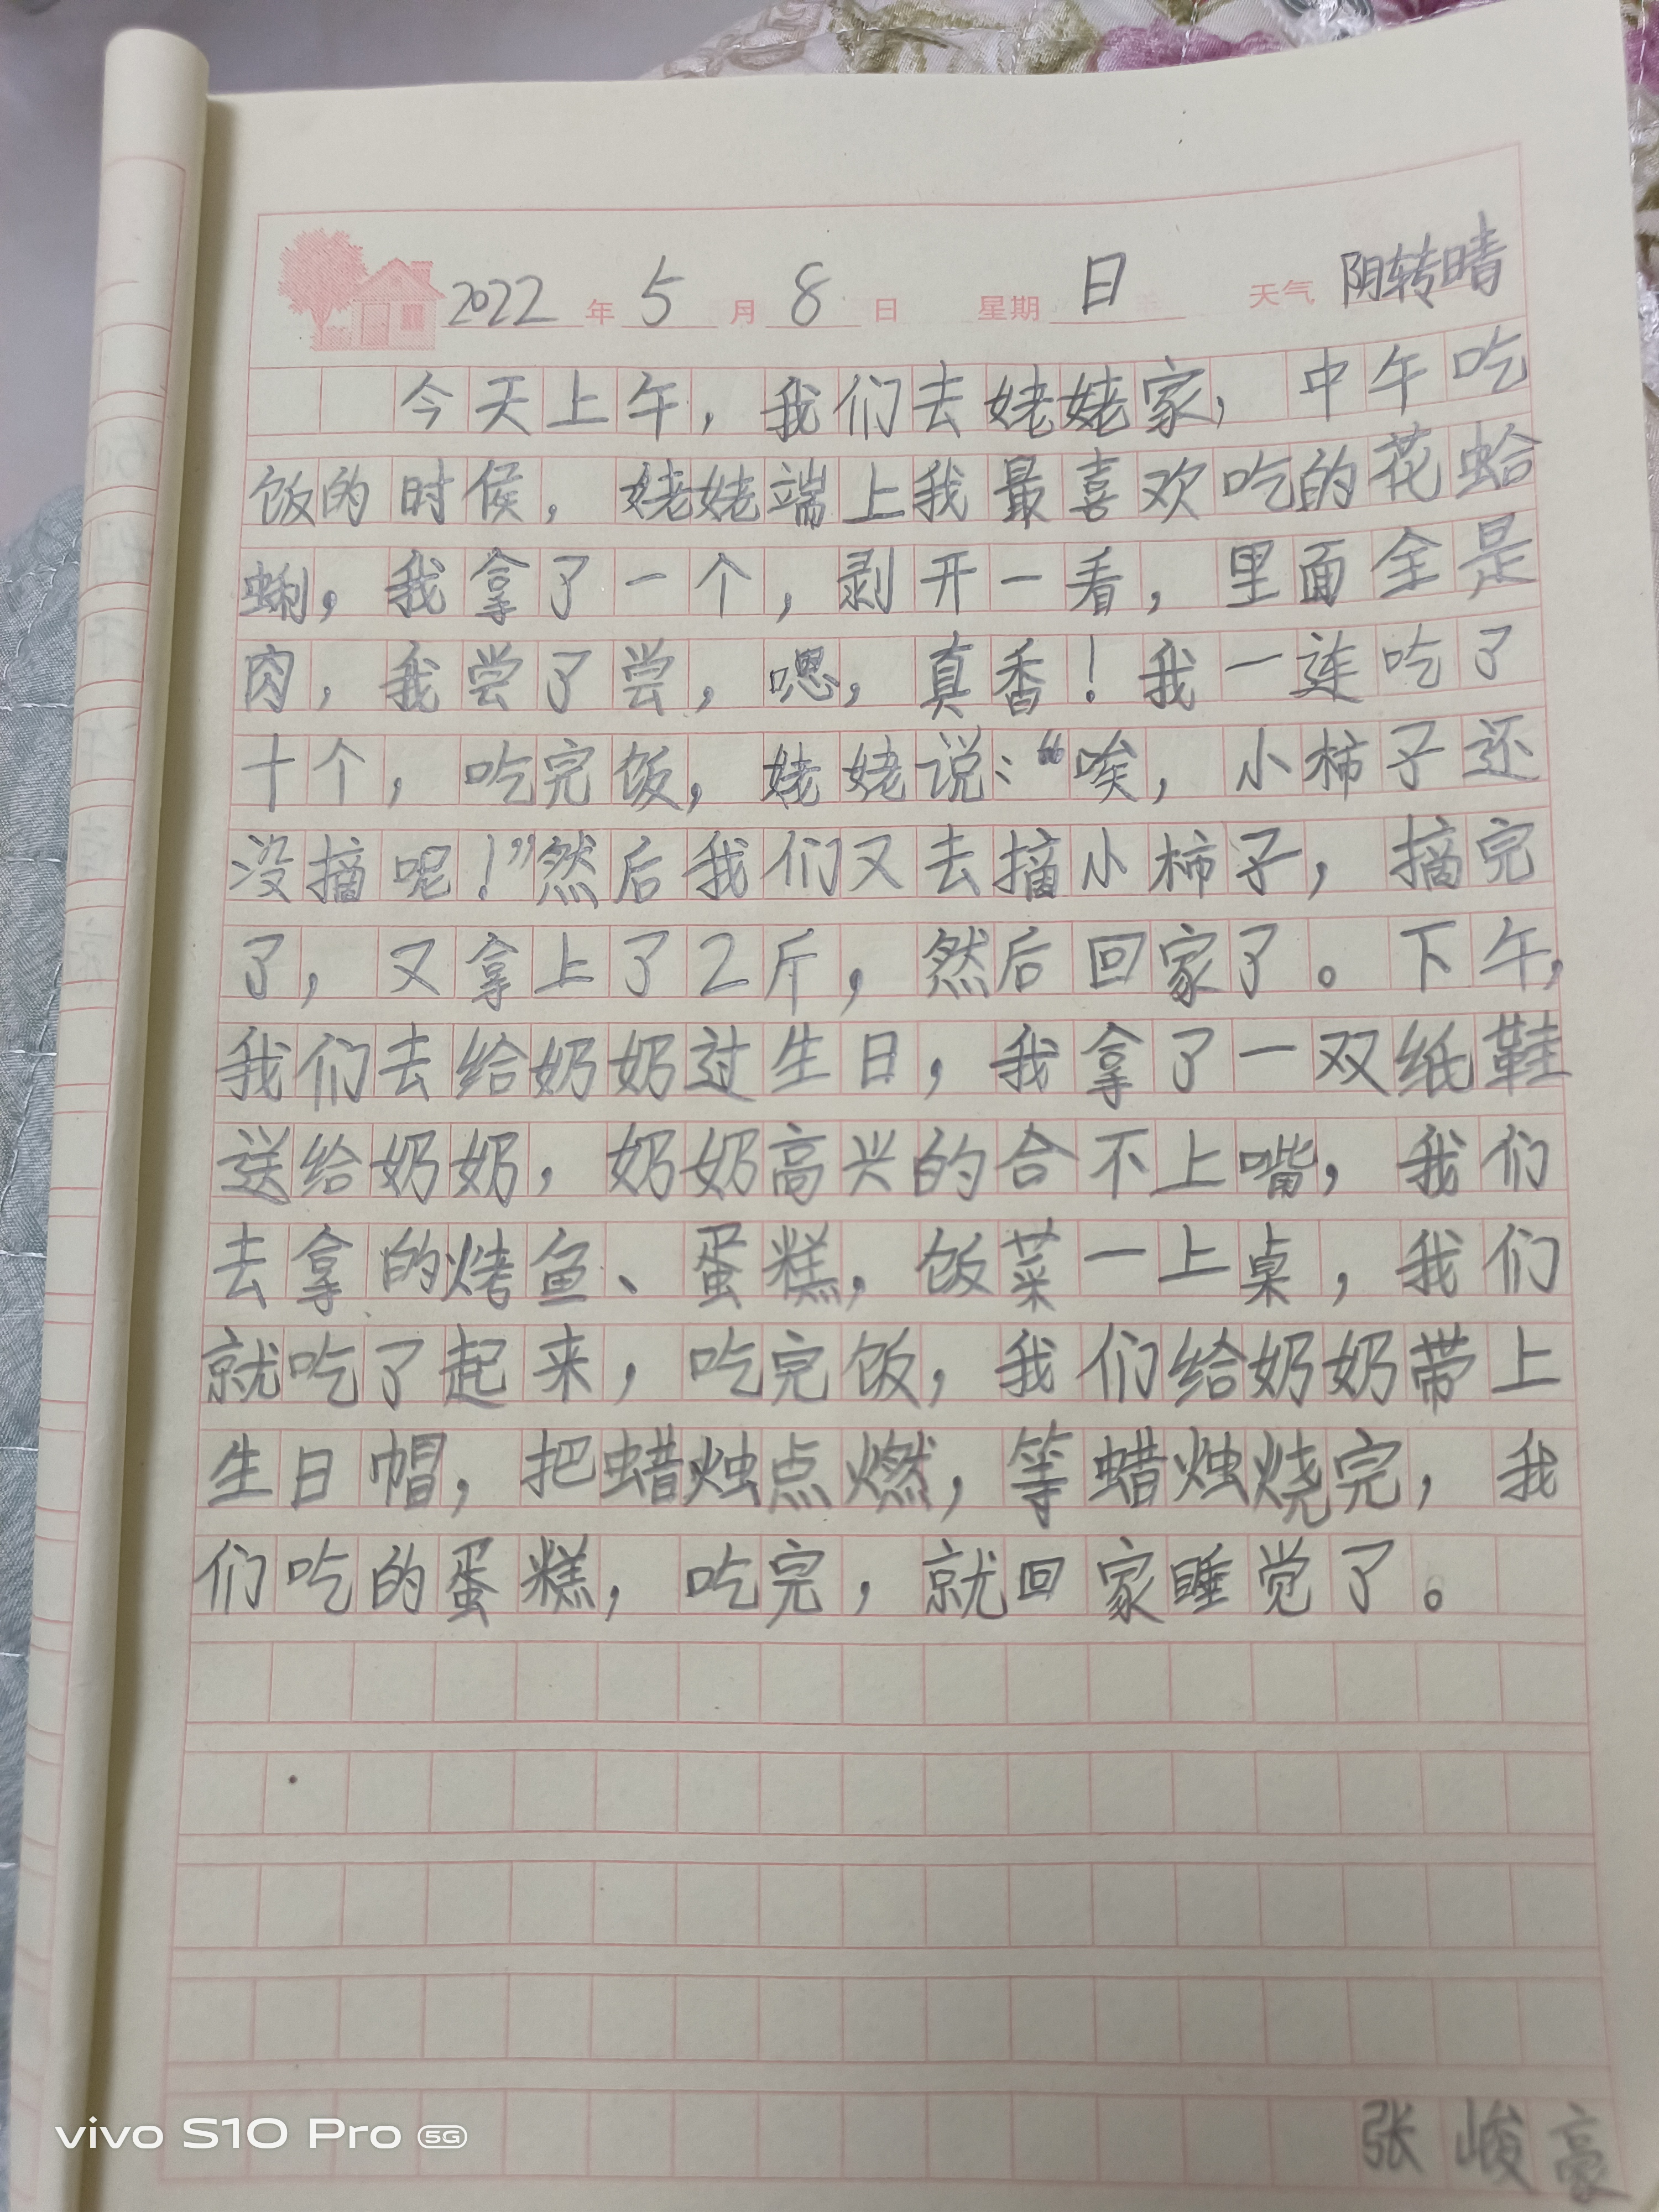 2022 年 5 月 8 日 星期 日 天气 阴转晴
今天上午，我们去姥姥家，中午吃
饭的时侯，姥姥端上我最喜欢吃的花蛤
蜊，我拿了一个，剥开一看，里面全是
肉，我尝了尝，嗯，真香！我一连吃了
十个，吃完饭，姥姥说：“唉，小柿子还
没摘呢！”然后我们又去摘小柿子，摘完
了，又拿上了2斤，然后回家了。下午，
我们去给奶奶过生日，我拿了一双纸鞋
送给奶奶，奶奶高兴的合不上嘴，我们
去拿的烤鱼、蛋糕，饭菜一上桌，我们
就吃了起来，吃完饭，我们给奶奶带上
生日帽，把蜡烛点燃，等蜡烛烧完，我
们吃的蛋糕，吃完，就回家睡觉了。
张峻豪
vivo S10 Pro 5G